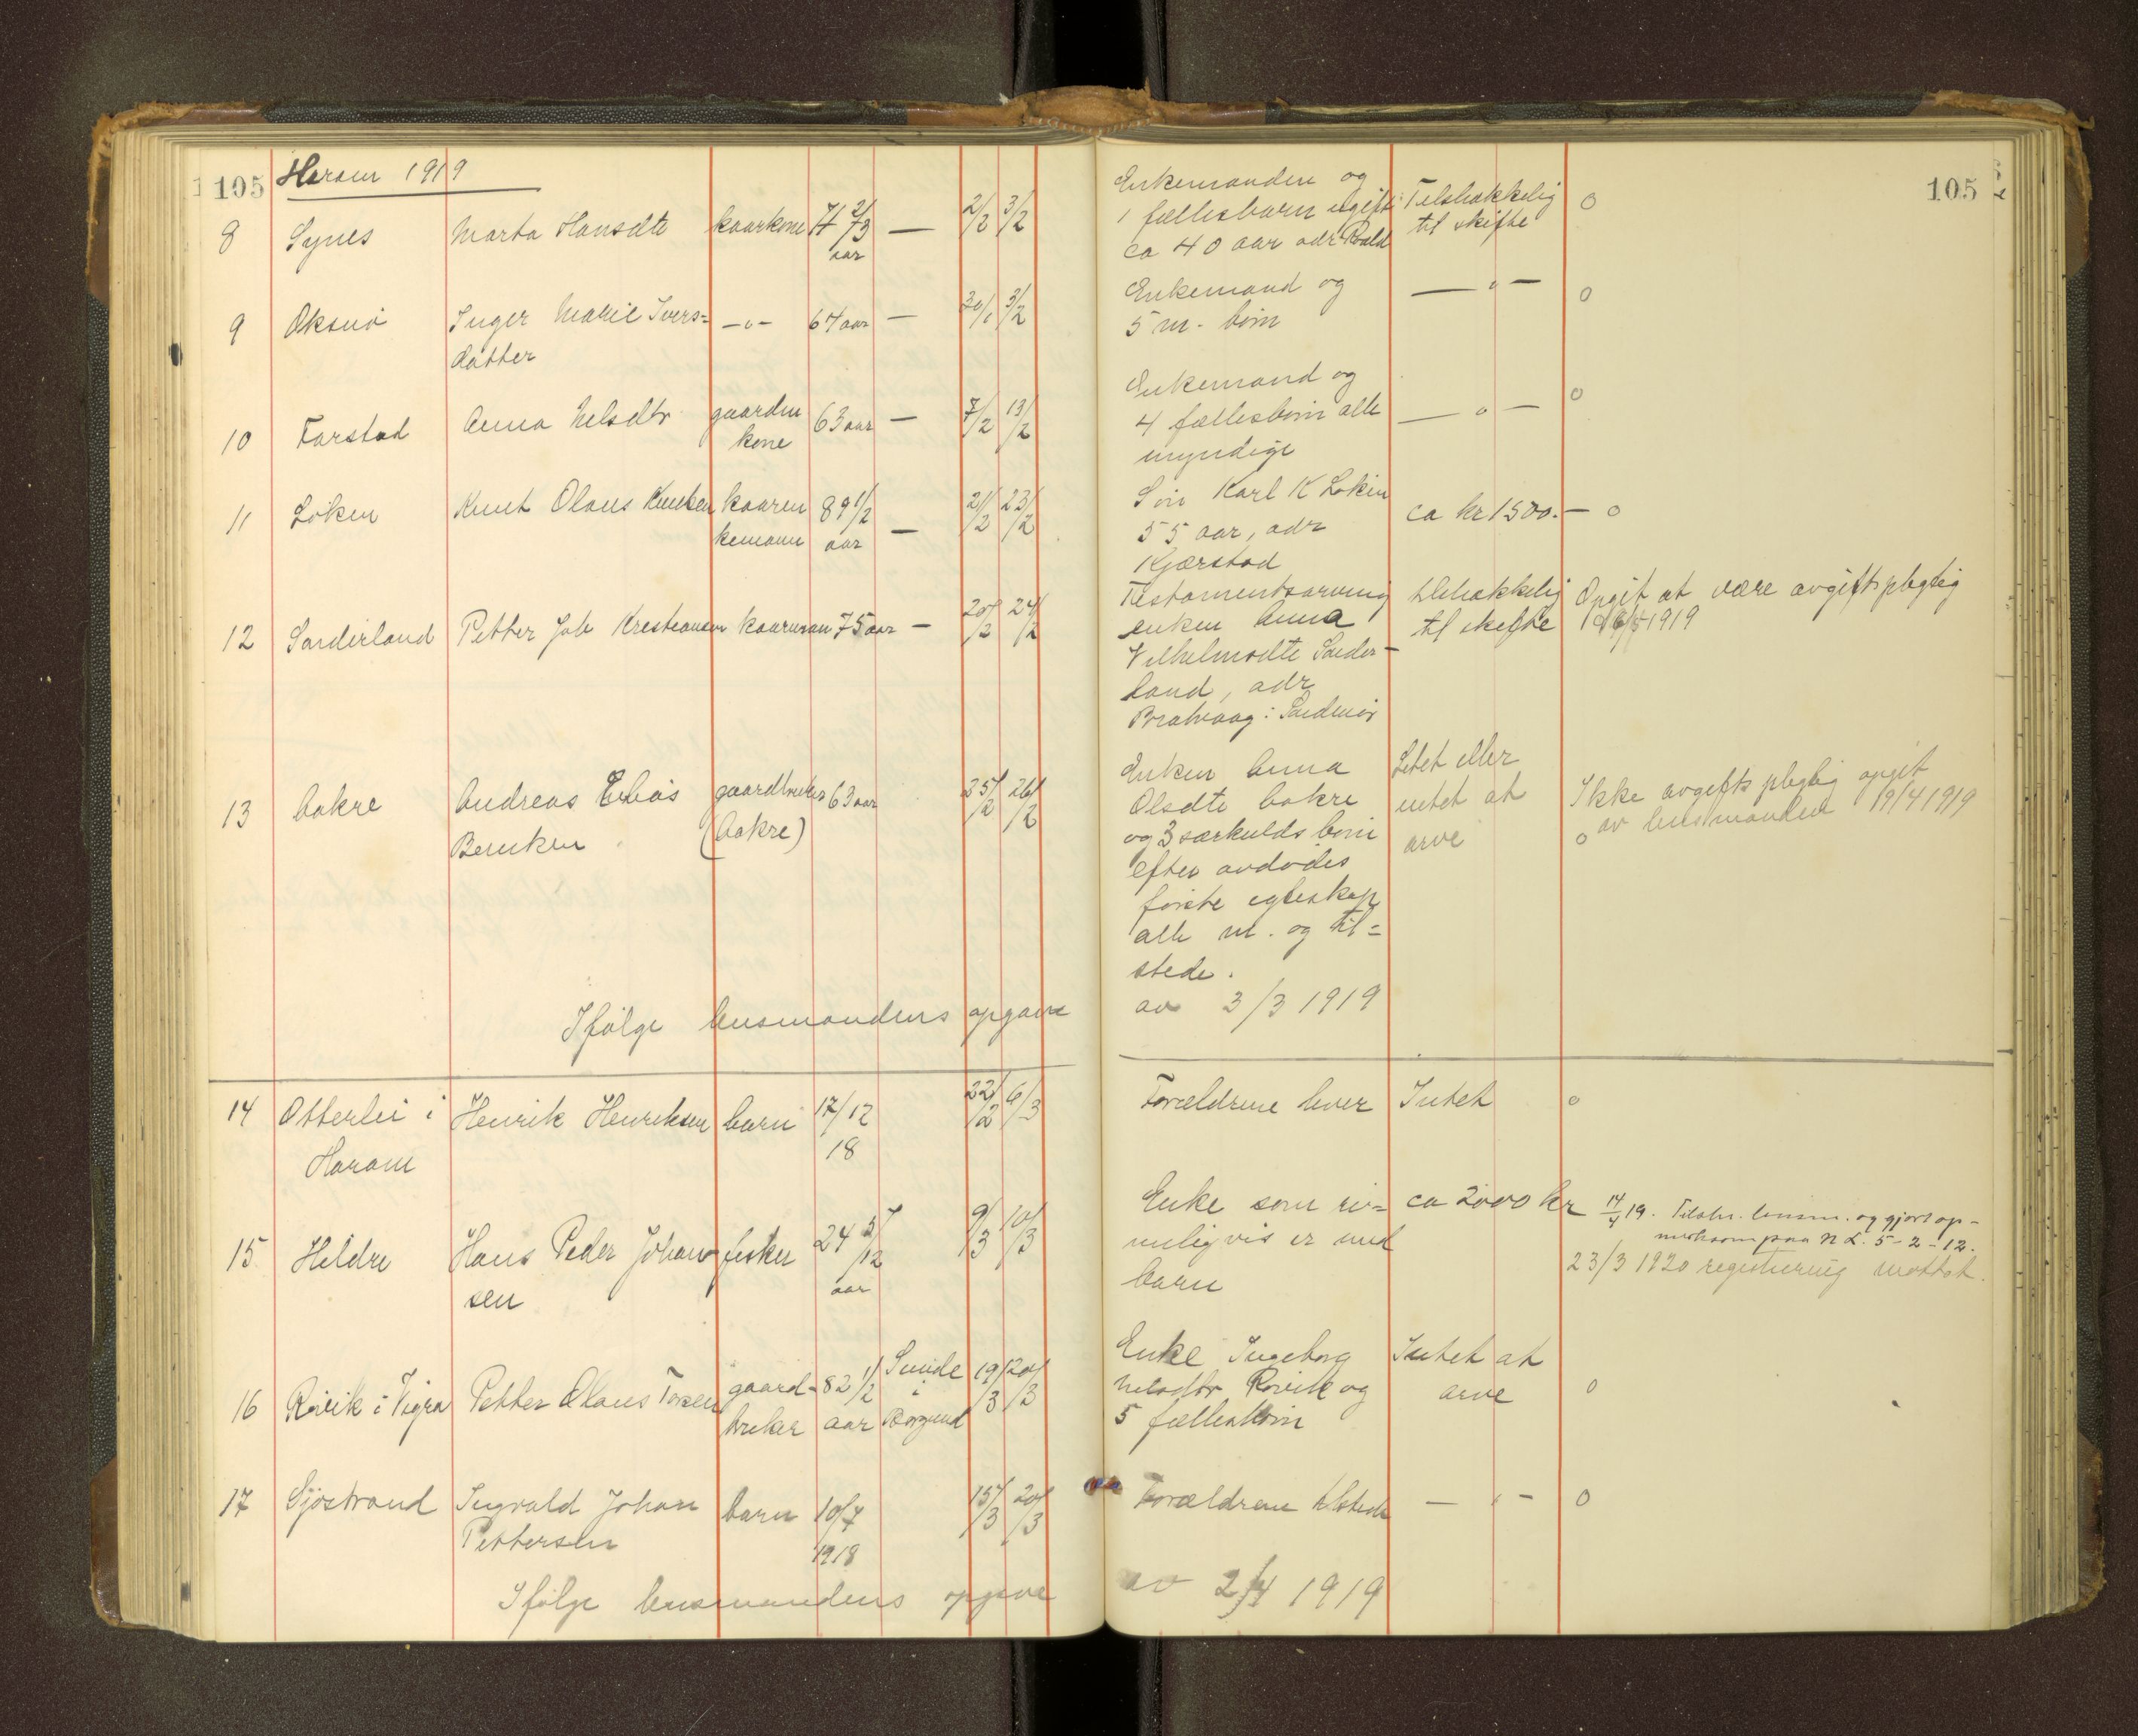 105 Haram 1919
8 Synes Marta Hansdtr kaarkone 71 2/3 aar — 2/2 3/2 Enkemanden og
1 fællesbarn ugift
ca 40 aar adr Roald Tilstrækkelig
til skifte o
9 Oksnø Inger Marie Ivers=
datter —"— 67 aar — 30/1 3/2 Enkemand og
5 m. børn —"— o
10 Farstad Anna Nelsdtr gaardm
kone 63 aar — 7/2 13/2 Enkemand og
4 fællesbørn alle
myndige —"— o
11 Løken Knut Olaus Knutsen kaaren
kemann 89 1/2
aar — 21/2 23/2 Søn Karl K Løken
55 aar, adr
Kjærstad ca kr 1500.— o
12 Sønderland Petter Joh Kristiansen kaarman 75 aar — 20/2 24/2 Testamentsarving
enken Anna
Vilhelmsdtr Sønder-
land, adr
Brattvaag i Søndmør tilstrækkelig
til skifte Opgit at være avgiftspligtig
1919
13 Aakre Andreas Elias
Berntsen gaardbruker
(Aakre) 63 aar 25/2 26/2 Enken Anna
Olsdtr Aakre
og 3 særkulds børn
efter avdødes
første egteskap
alle m. og til=
stede. Litet eller
intet at
arve Ikke avgifts pligtig opgit
o av lensmanden 19/4 1919
Ifølge lensmandens opgave av 3/3 1919
14 Otterlei i
Haram Henrik Henriksen barn 17/12
18 22/2 6/3 Forældrene lever Intet o
15 Hildre Hans Peder Johan
sen fisker 24 5/12
aar 9/3 10/3 Enke som ri=
meligvis er med
barn ca 2000 kr 14/4 19. Tilskr. lensm. og gjort op-
merksom paa N L. 5-2-12.
23/3 1920 registrering mottat.
16 Røvik i Vigra Petter Olaus Tosen gaard-
bruker 82 1/2
aar Sunde
i
Borgund 19/3 20/3 Enke Ingeborg
Nelsdtr Røvik og
5 fællesbørn Intet at
arve o
17 Sjøstrand Ingvald Johan
Pettersen barn 10/7
1918 15/3 20/3 Forældrene tilstede —"— o
Ifølge lensmandens opgave av 2/4 1919
105